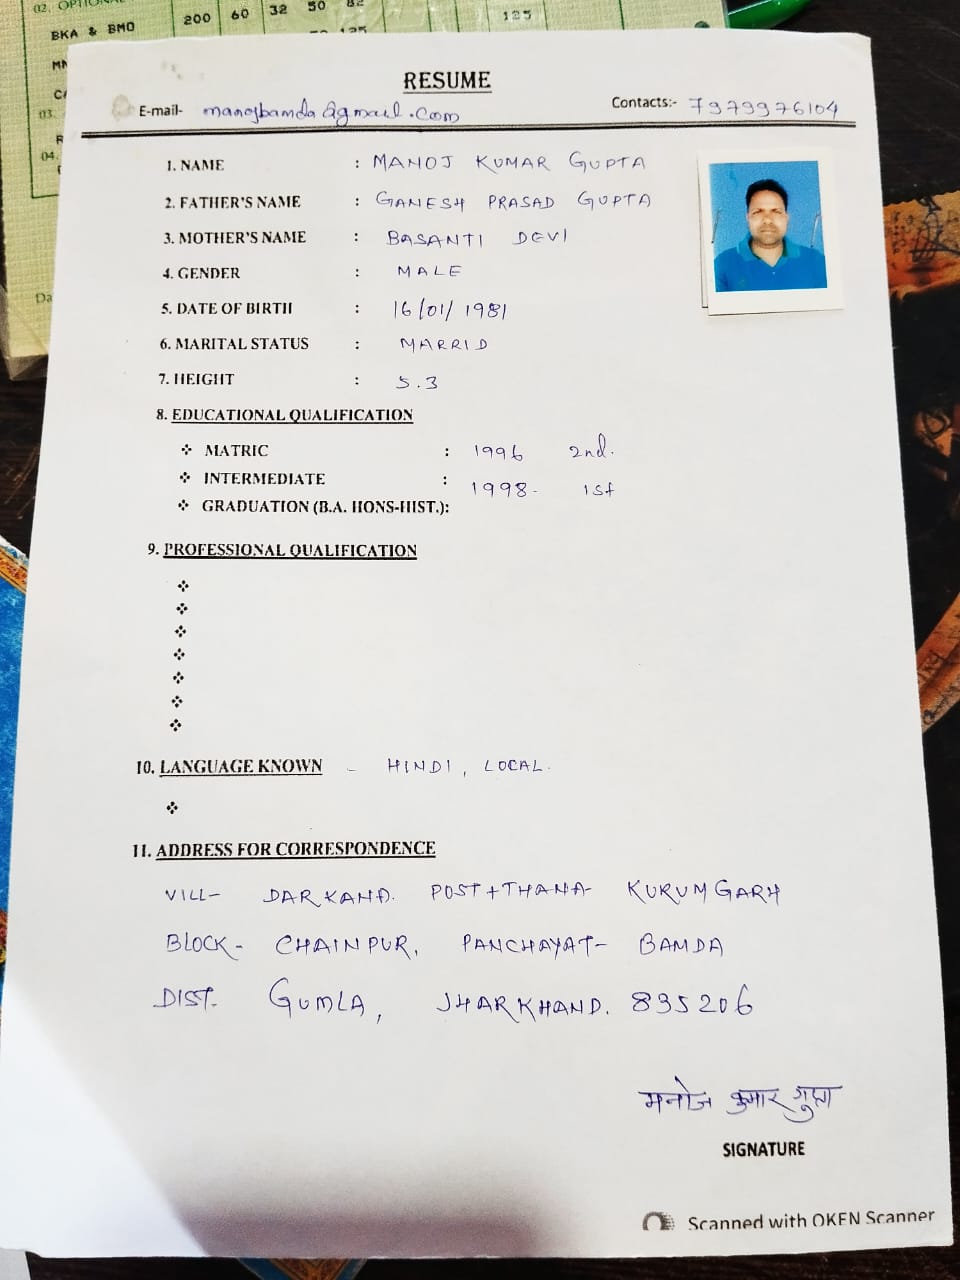 02. OPTIONA
BKA & BMO 200 60 32 50 82
125
03.
04.
RESUME
E-mail- manojbamda@gmail.com Contacts:- 7979976104
1. NAME : MANOJ KUMAR GUPTA
2. FATHER'S NAME : GANESH PRASAD GUPTA
3. MOTHER'S NAME : BASANTI DEVI
4. GENDER : MALE
5. DATE OF BIRTH : 16/01/1981
6. MARITAL STATUS : MARRID
7. HEIGHT : 5.3
8. EDUCATIONAL QUALIFICATION
❖ MATRIC : 1996 2nd.
❖ INTERMEDIATE : 1998- 1st
❖ GRADUATION (B.A. HONS-HIST.):
9. PROFESSIONAL QUALIFICATION
10. LANGUAGE KNOWN - HINDI, LOCAL.
11. ADDRESS FOR CORRESPONDENCE
VILL- DARKANA. POST+THANA- KURUMGARH
BLOCK- CHAINPUR, PANCHAYAT- BAMDA
DIST- GUMLA, JHARKHAND. 835206
मनोज कुमार गुप्ता
SIGNATURE
Scanned with OKEN Scanner